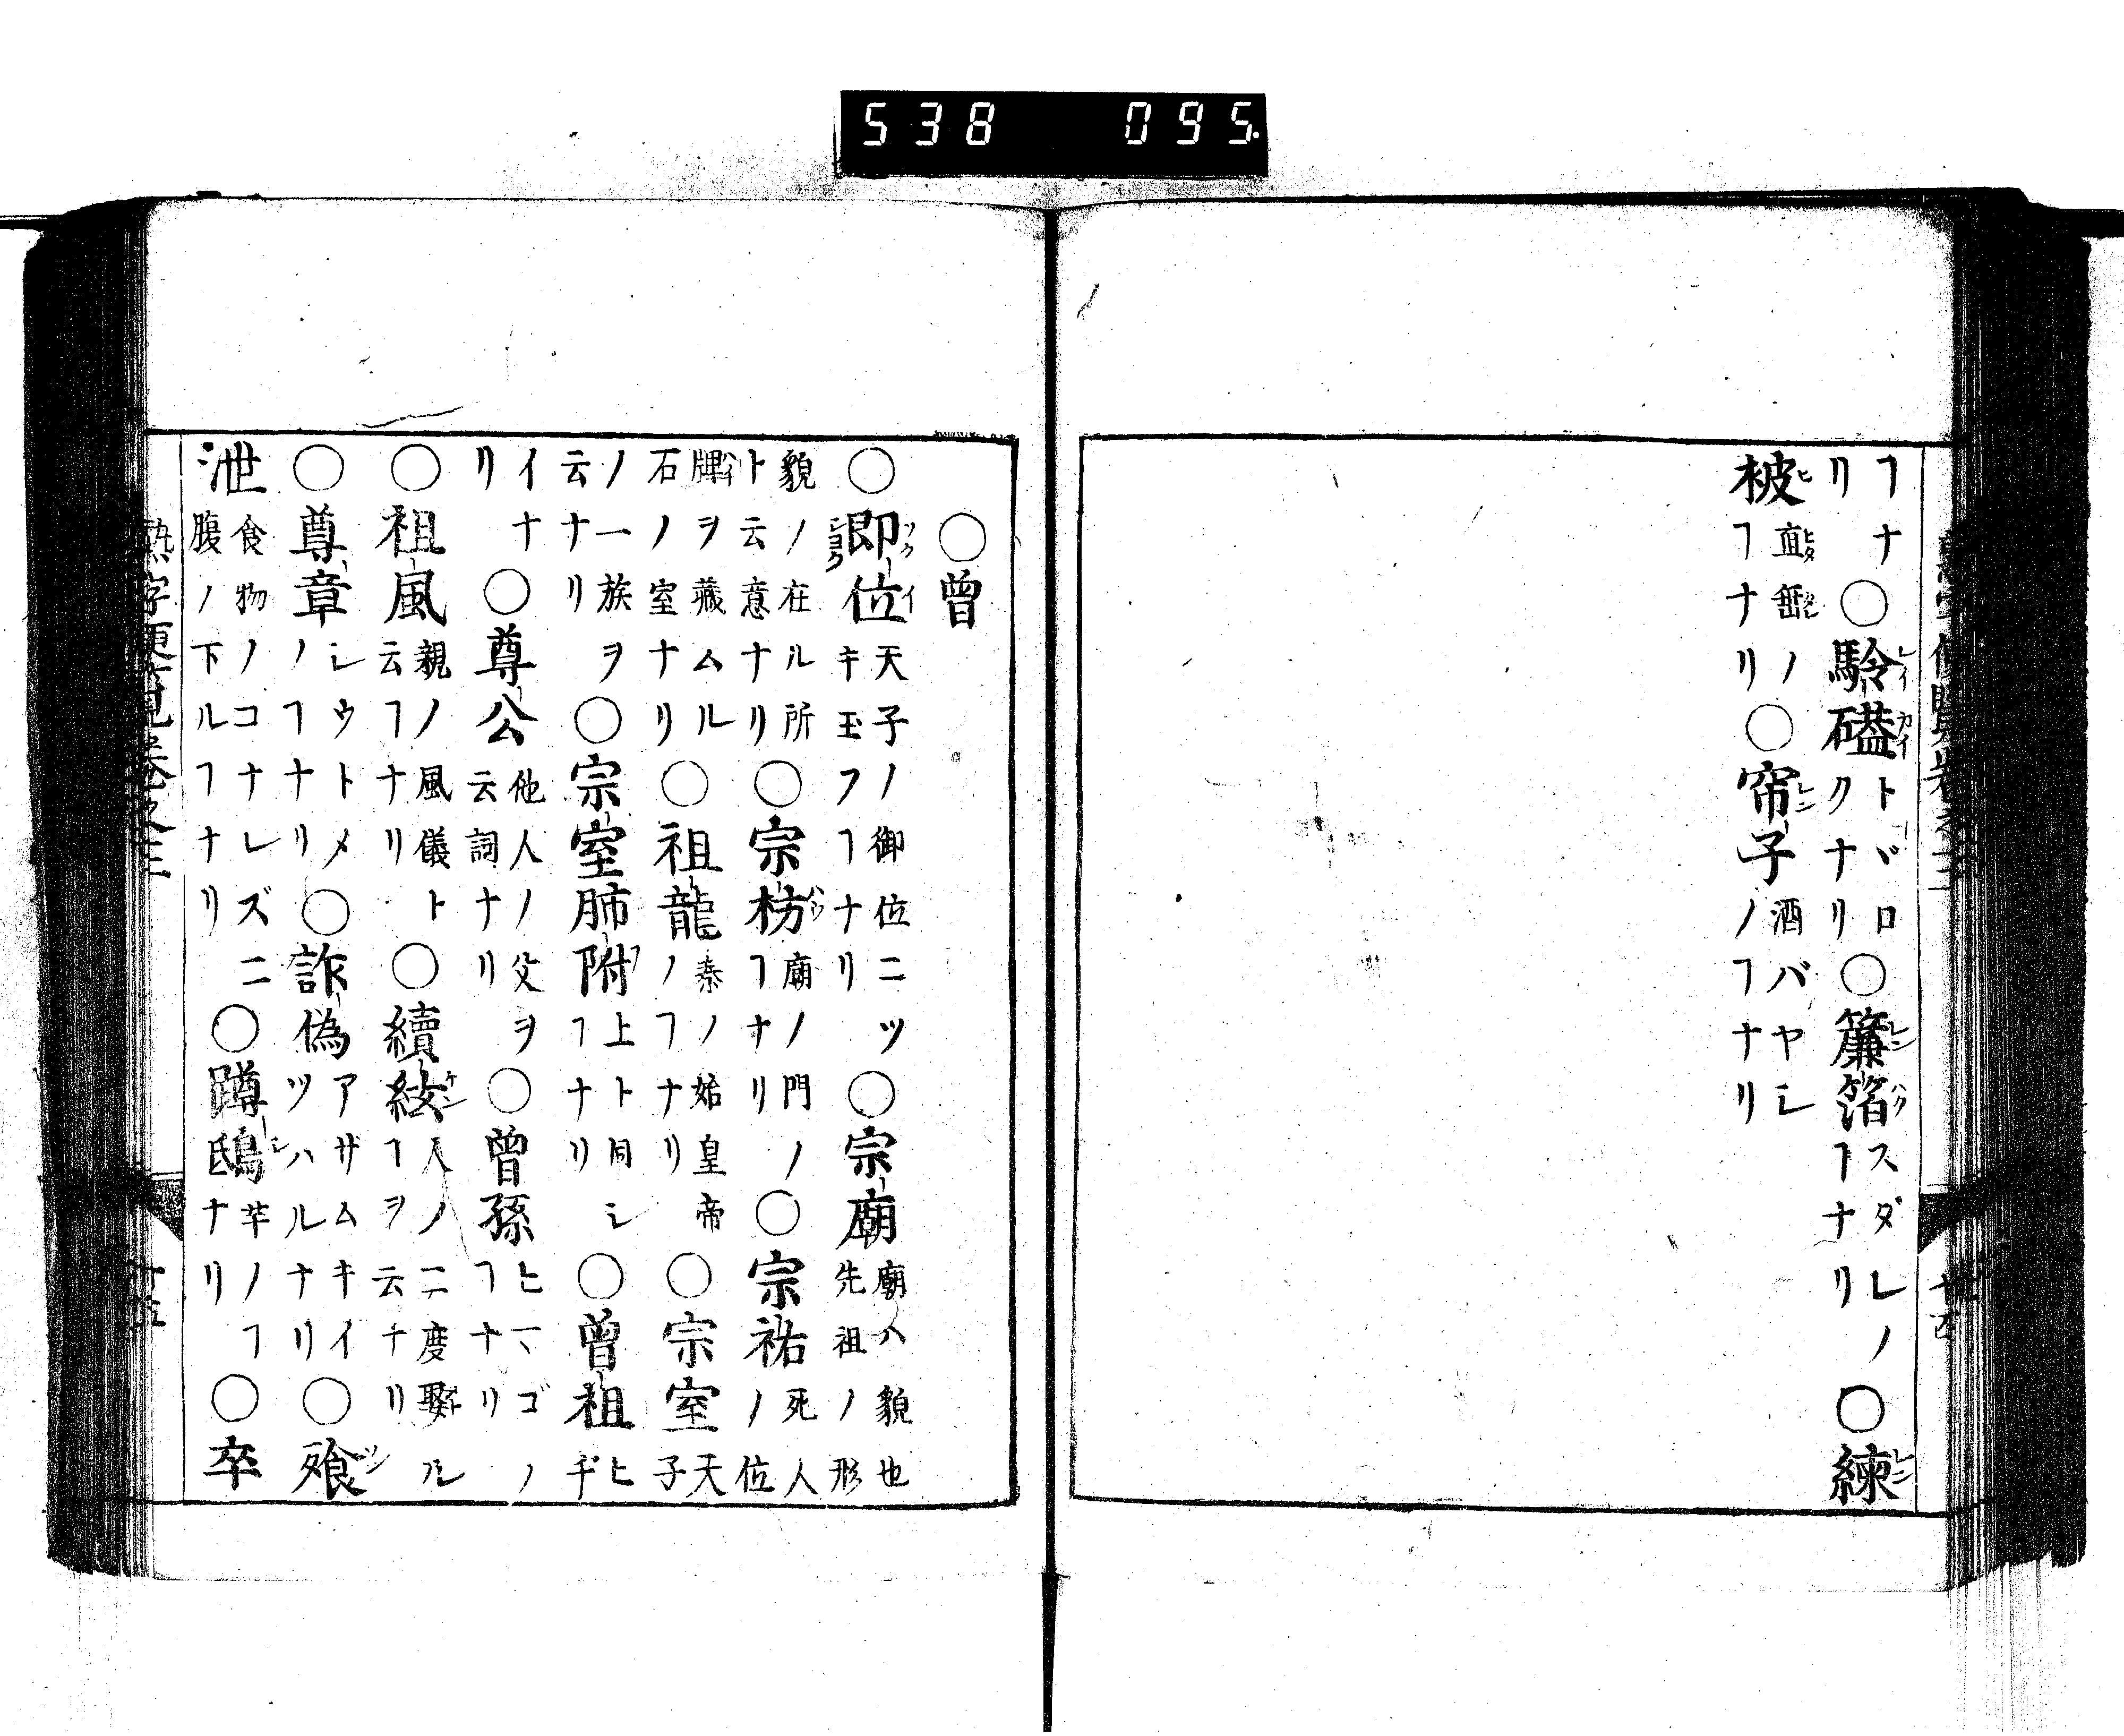 538 095
ヿナ
リ
○駖磕
トヾロ
クナリ
○簾箔
スダレノ
ヿナリ
○練
柀
直垂ノ
ヿナリ
○帘子
酒バヤシ
ノヿナリ
○曾
○即位
天子ノ御位ニツ
キ玉フヿナリ
○宗廟
廟ハ貌也
先祖ノ形
貌ノ在ル所
ト云意ナリ
○宗枋
廟ノ門ノ
ヿナリ
○宗祐
死人ノ位
牌ヲ藏ムル
石ノ室ナリ
○祖龍
秦ノ始皇帝
ノヿナリ
○宗室
天子
ノ一族ヲ
云ナリ
○宗室肺附
上ト同シ
ヿナリ
○曾祖
ヒヂ
イナ
リ
○尊公
他人ノ父ヲ
云詞ナリ
○曾孫
ヒマゴノ
ヿナリ
○祖風
親ノ風儀ト
云ヿナリ
○續絃
人ノ二度娶ル
ヿヲ云ナリ
○尊章
シウトメ
ノヿナリ
○詐偽
アザムキイ
ツハルナリ
○飱
泄
食物ノコナレズニ
腹ノ下ルヿナリ
○蹲鴟
芋ノヿ
ナリ
○卒
熟字便覽卷之三
十五